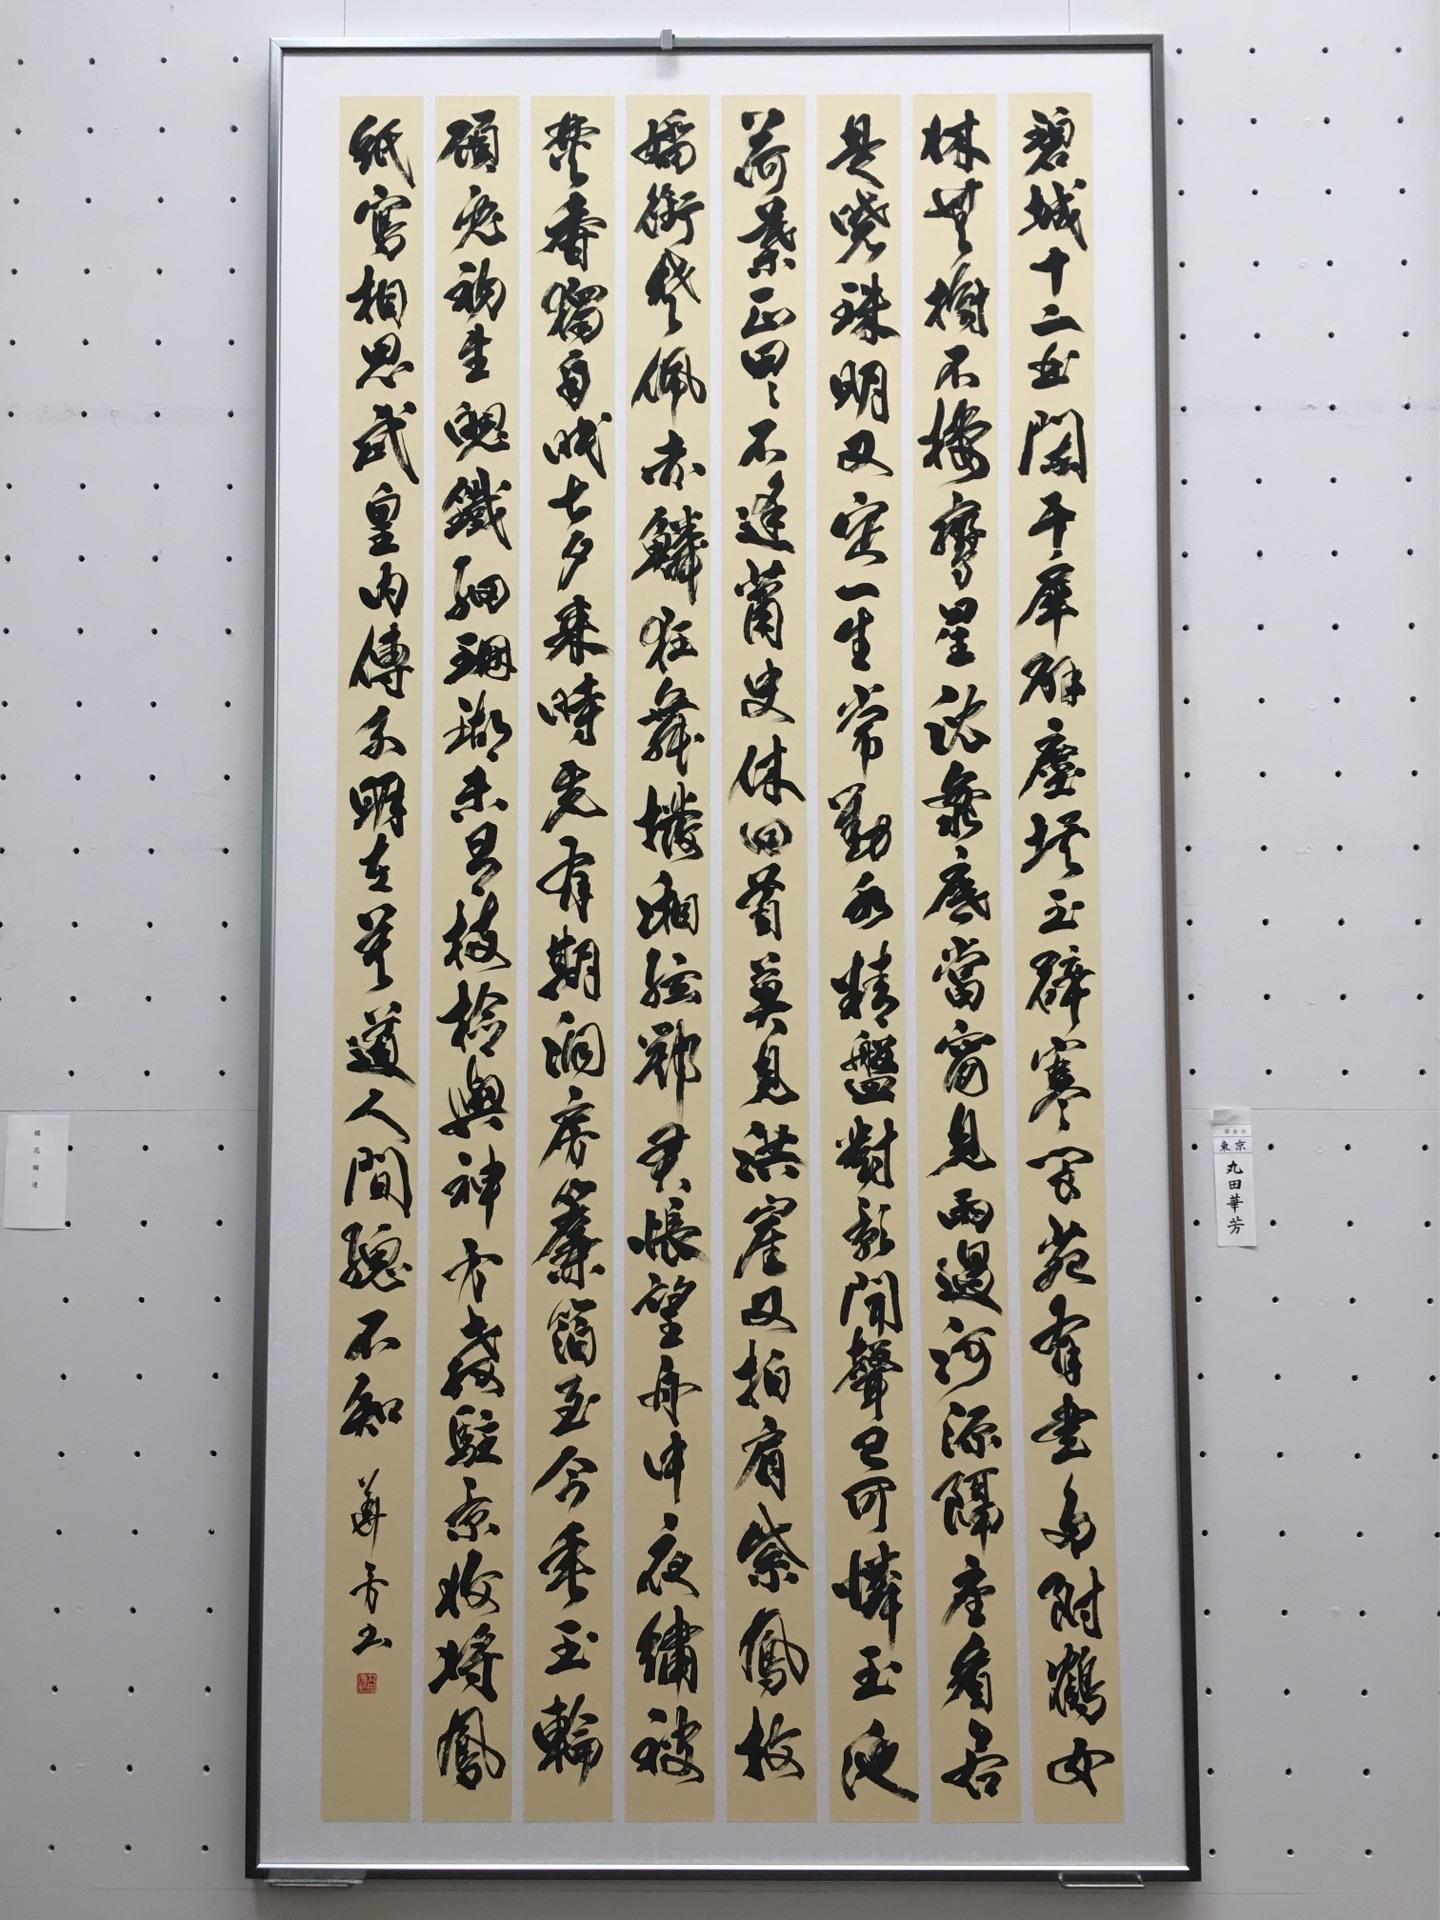 碧城十二曲闌干犀辟塵埃玉辟寒閬苑有書多附鶴女
牀無樹不棲鸞星沈海底當窗見雨過河源隔座看若
是曉珠明又定一生常對水精盤對影聞聲已可憐玉池
荷葉正田々不逢蕭史休回首莫見洪崖又拍肩紫鳳放
嬌銜楚佩赤鱗狂舞撥湘絃鄂君悵望舟中夜繡被
焚香獨自眠七夕來時先有期洞房簾箔至今垂玉輪
顧兔初生魄鐵網珊瑚未有枝檢與神方教駐景收將鳳
紙寫相思武皇内傳分明在莫道人間總不知 華芳書
東京
丸田華芳